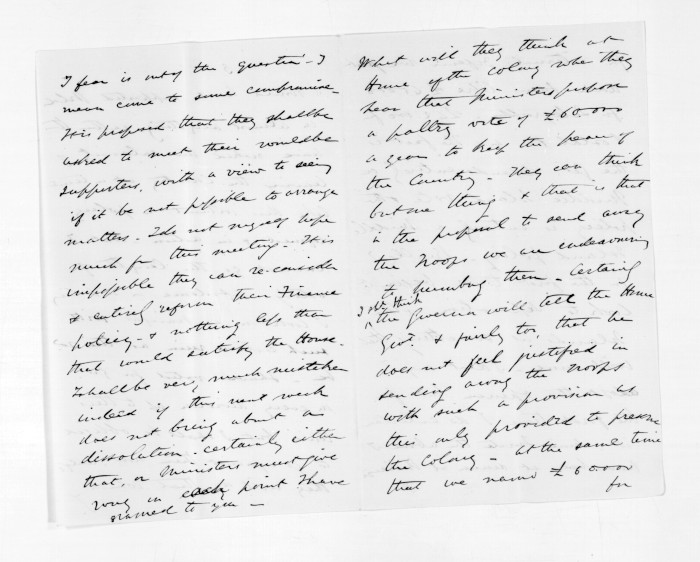 I fear is out of the question - I
mean come to some compromise -
It is proposed that they shall be
asked to meet their would be
supporters, with a view to seeing
if it be not possible to arrange
matters - I do not myself hope
much for this meeting - It is
impossible they can re-consider
& entirely reform their Finance
policy - & nothing less than
that would satisfy the House -
I shall be very much mistaken
indeed if this next week
does not bring about a
dissolution - certainly either
that, or Ministers must give
way in each point I have
named to you -
What will they think at
Home of the colony when they
hear that Ministers propose
a paltry vote of £60.000
a year to keep the peace of
the Country - They can think
but one thing & that is that
in the proposal to send away
the Troops we are endeavouring
to humbug them - Certainly
I shd. think
the Governor will tell the Home
Govt. & fairly too, that he
does not feel justified in
sending away the Troops
with such a provision as
this only provided to preserve
the Colony - At the same time
that we name £60000
for